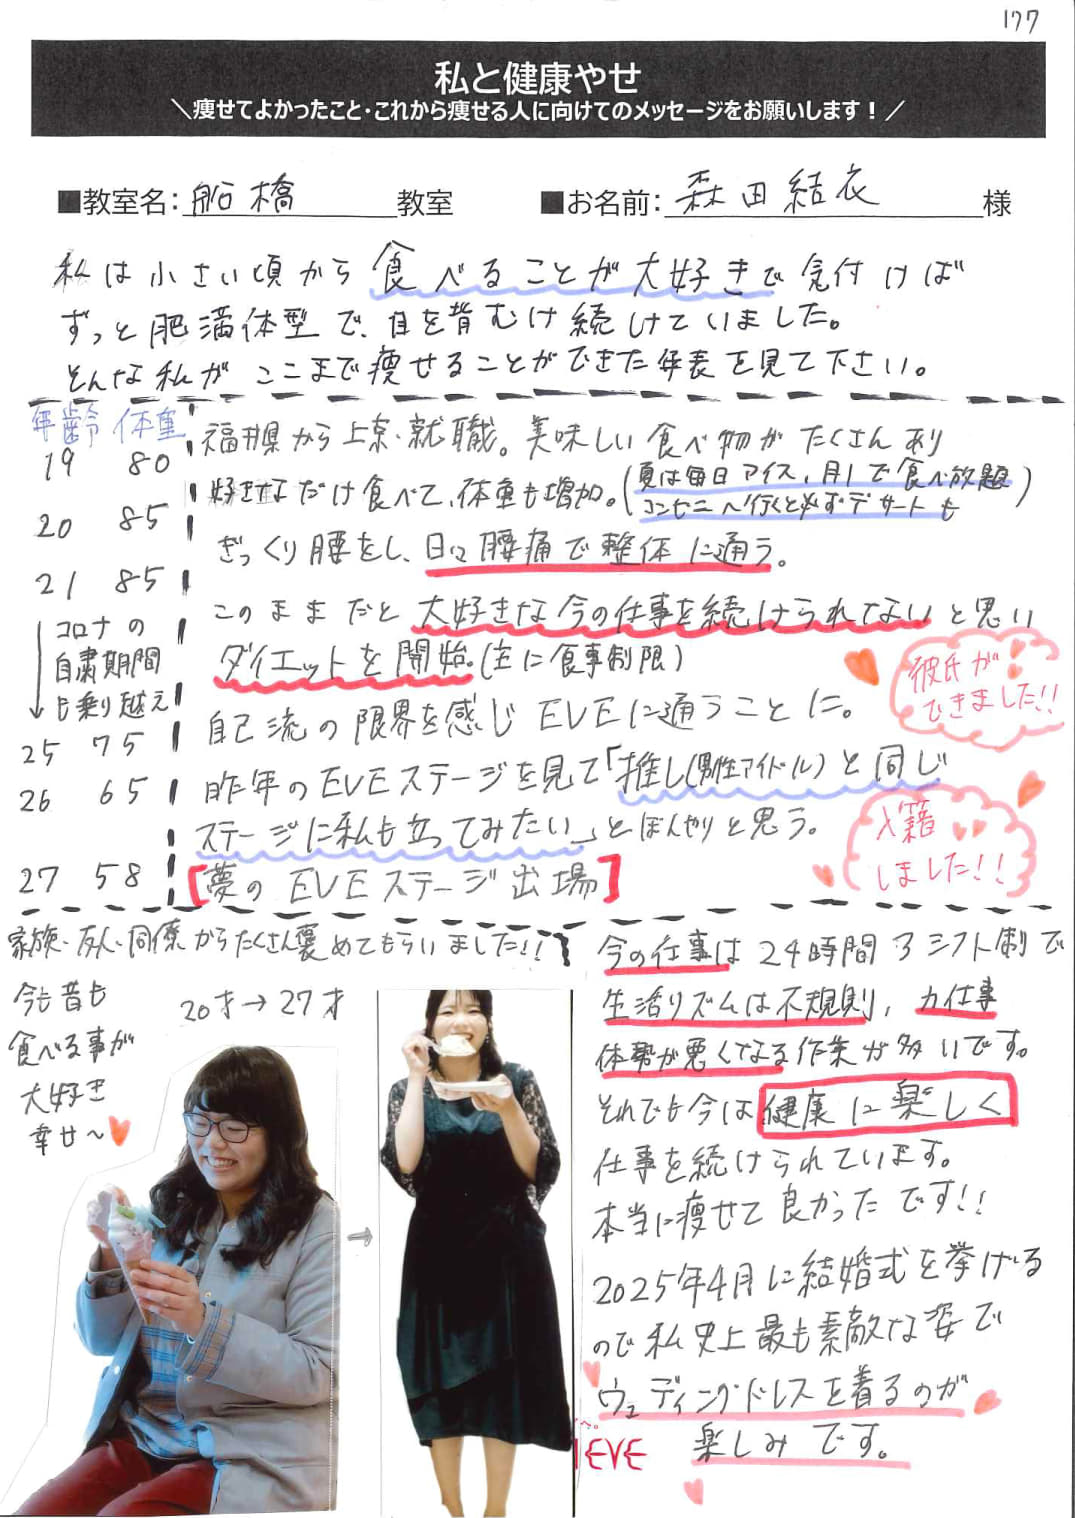 177
私と健康やせ
＼痩せてよかったこと・これから痩せる人に向けてのメッセージをお願いします！／
■教室名：船橋教室 ■お名前：森田結衣様
私は小さい頃から食べることが大好きで気付けば
ずっと肥満体型で、目を背むけ続けていました。
そんな私がここまで痩せることができた年表を見て下さい。
年齢 体重
19 80
福井県から上京・就職。美味しい食べ物がたくさんあり
好きなだけ食べて、体重も増加。（夏は毎日アイス、月1で食べ放題
コンビニへ行くと必ずデザートも）
20 85
ぎっくり腰をし、日々腰痛で整体に通う。
21 85
このままだと大好きな今の仕事を続けられないと思い
ダイエットを開始。（主に食事制限）
↓コロナの
自粛期間
も乗り越え
自己流の限界を感じEVEに通うことに。
彼氏が
できました!!
25 75
昨年のEVEステージを見て「推し（男性アイドル）と同じ
26 65
ステージに私も立ってみたい」とぼんやりと思う。
入籍
しました!!
27 58
[夢のEVEステージ出場]
家族・友人・同僚からたくさん褒めてもらいました!!
今も昔も
食べる事が
大好き
幸せ〜
20才→27才
→
今の仕事は24時間3シフト制で
生活リズムは不規則，力仕事
体勢が悪くなる作業が多いです。
それでも今は健康に楽しく
仕事を続けられています。
本当に痩せて良かったです!!
2025年4月に結婚式を挙げる
ので私史上最も素敵な姿で
ウェディングドレスを着るのが
楽しみです。
EVE